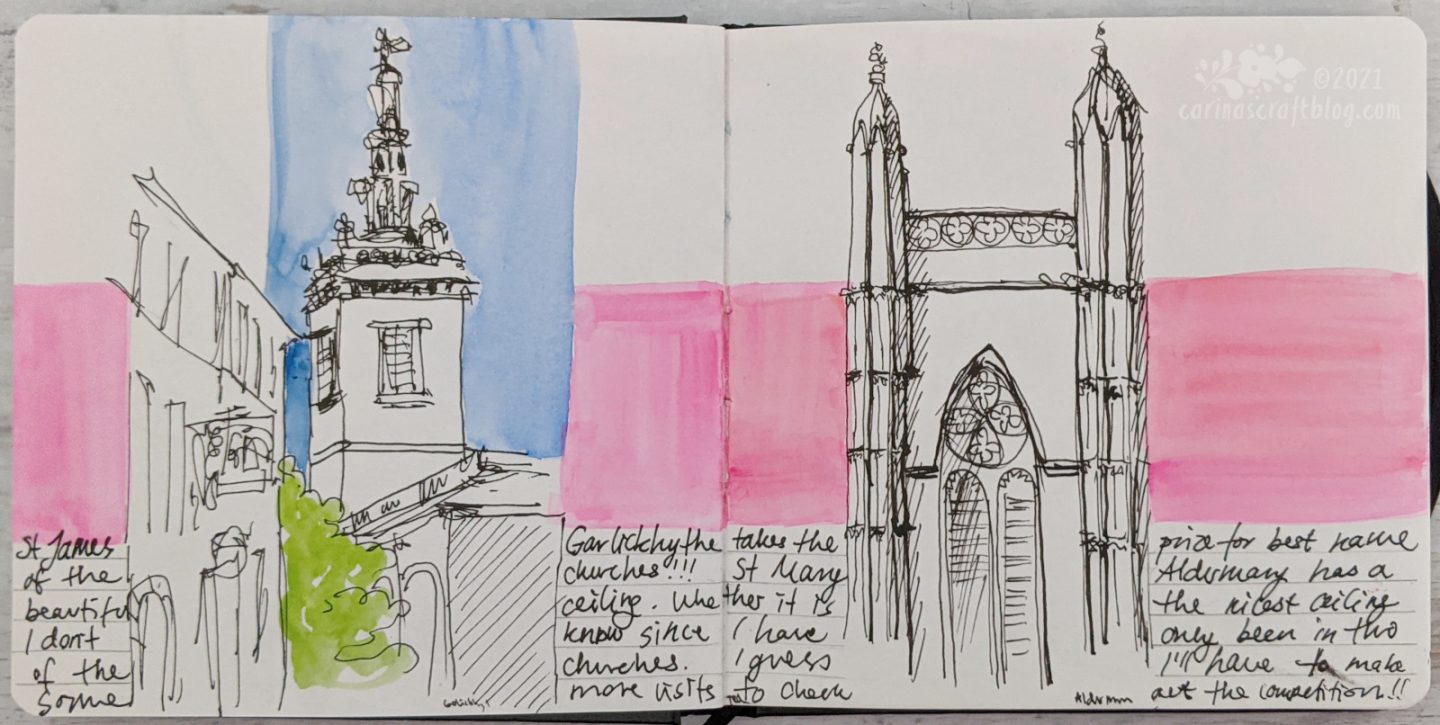 ©2021
carinascraftblog.com
St James Garlickhythe takes the prize for best name
of the churches!!! St Mary Aldermary has a
beautiful ceiling. Whether it is the nicest ceiling
I don't know since I have only been in two
of the churches. I guess I'll have to make
some more visits to check out the competition!!